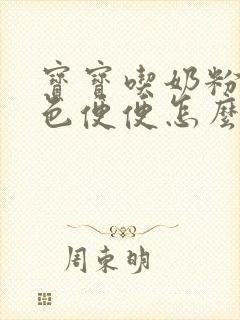 寶寶喫奶粉
色便便怎麼
周東明